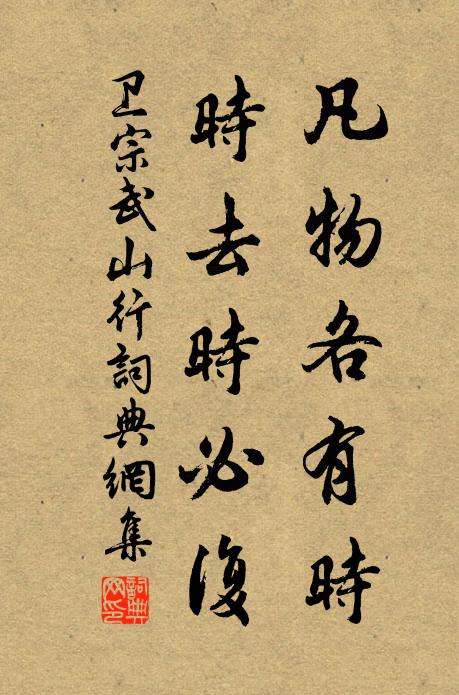 凡物各有時
時去時必復
卫宗武山行詞典網集
詞典网印